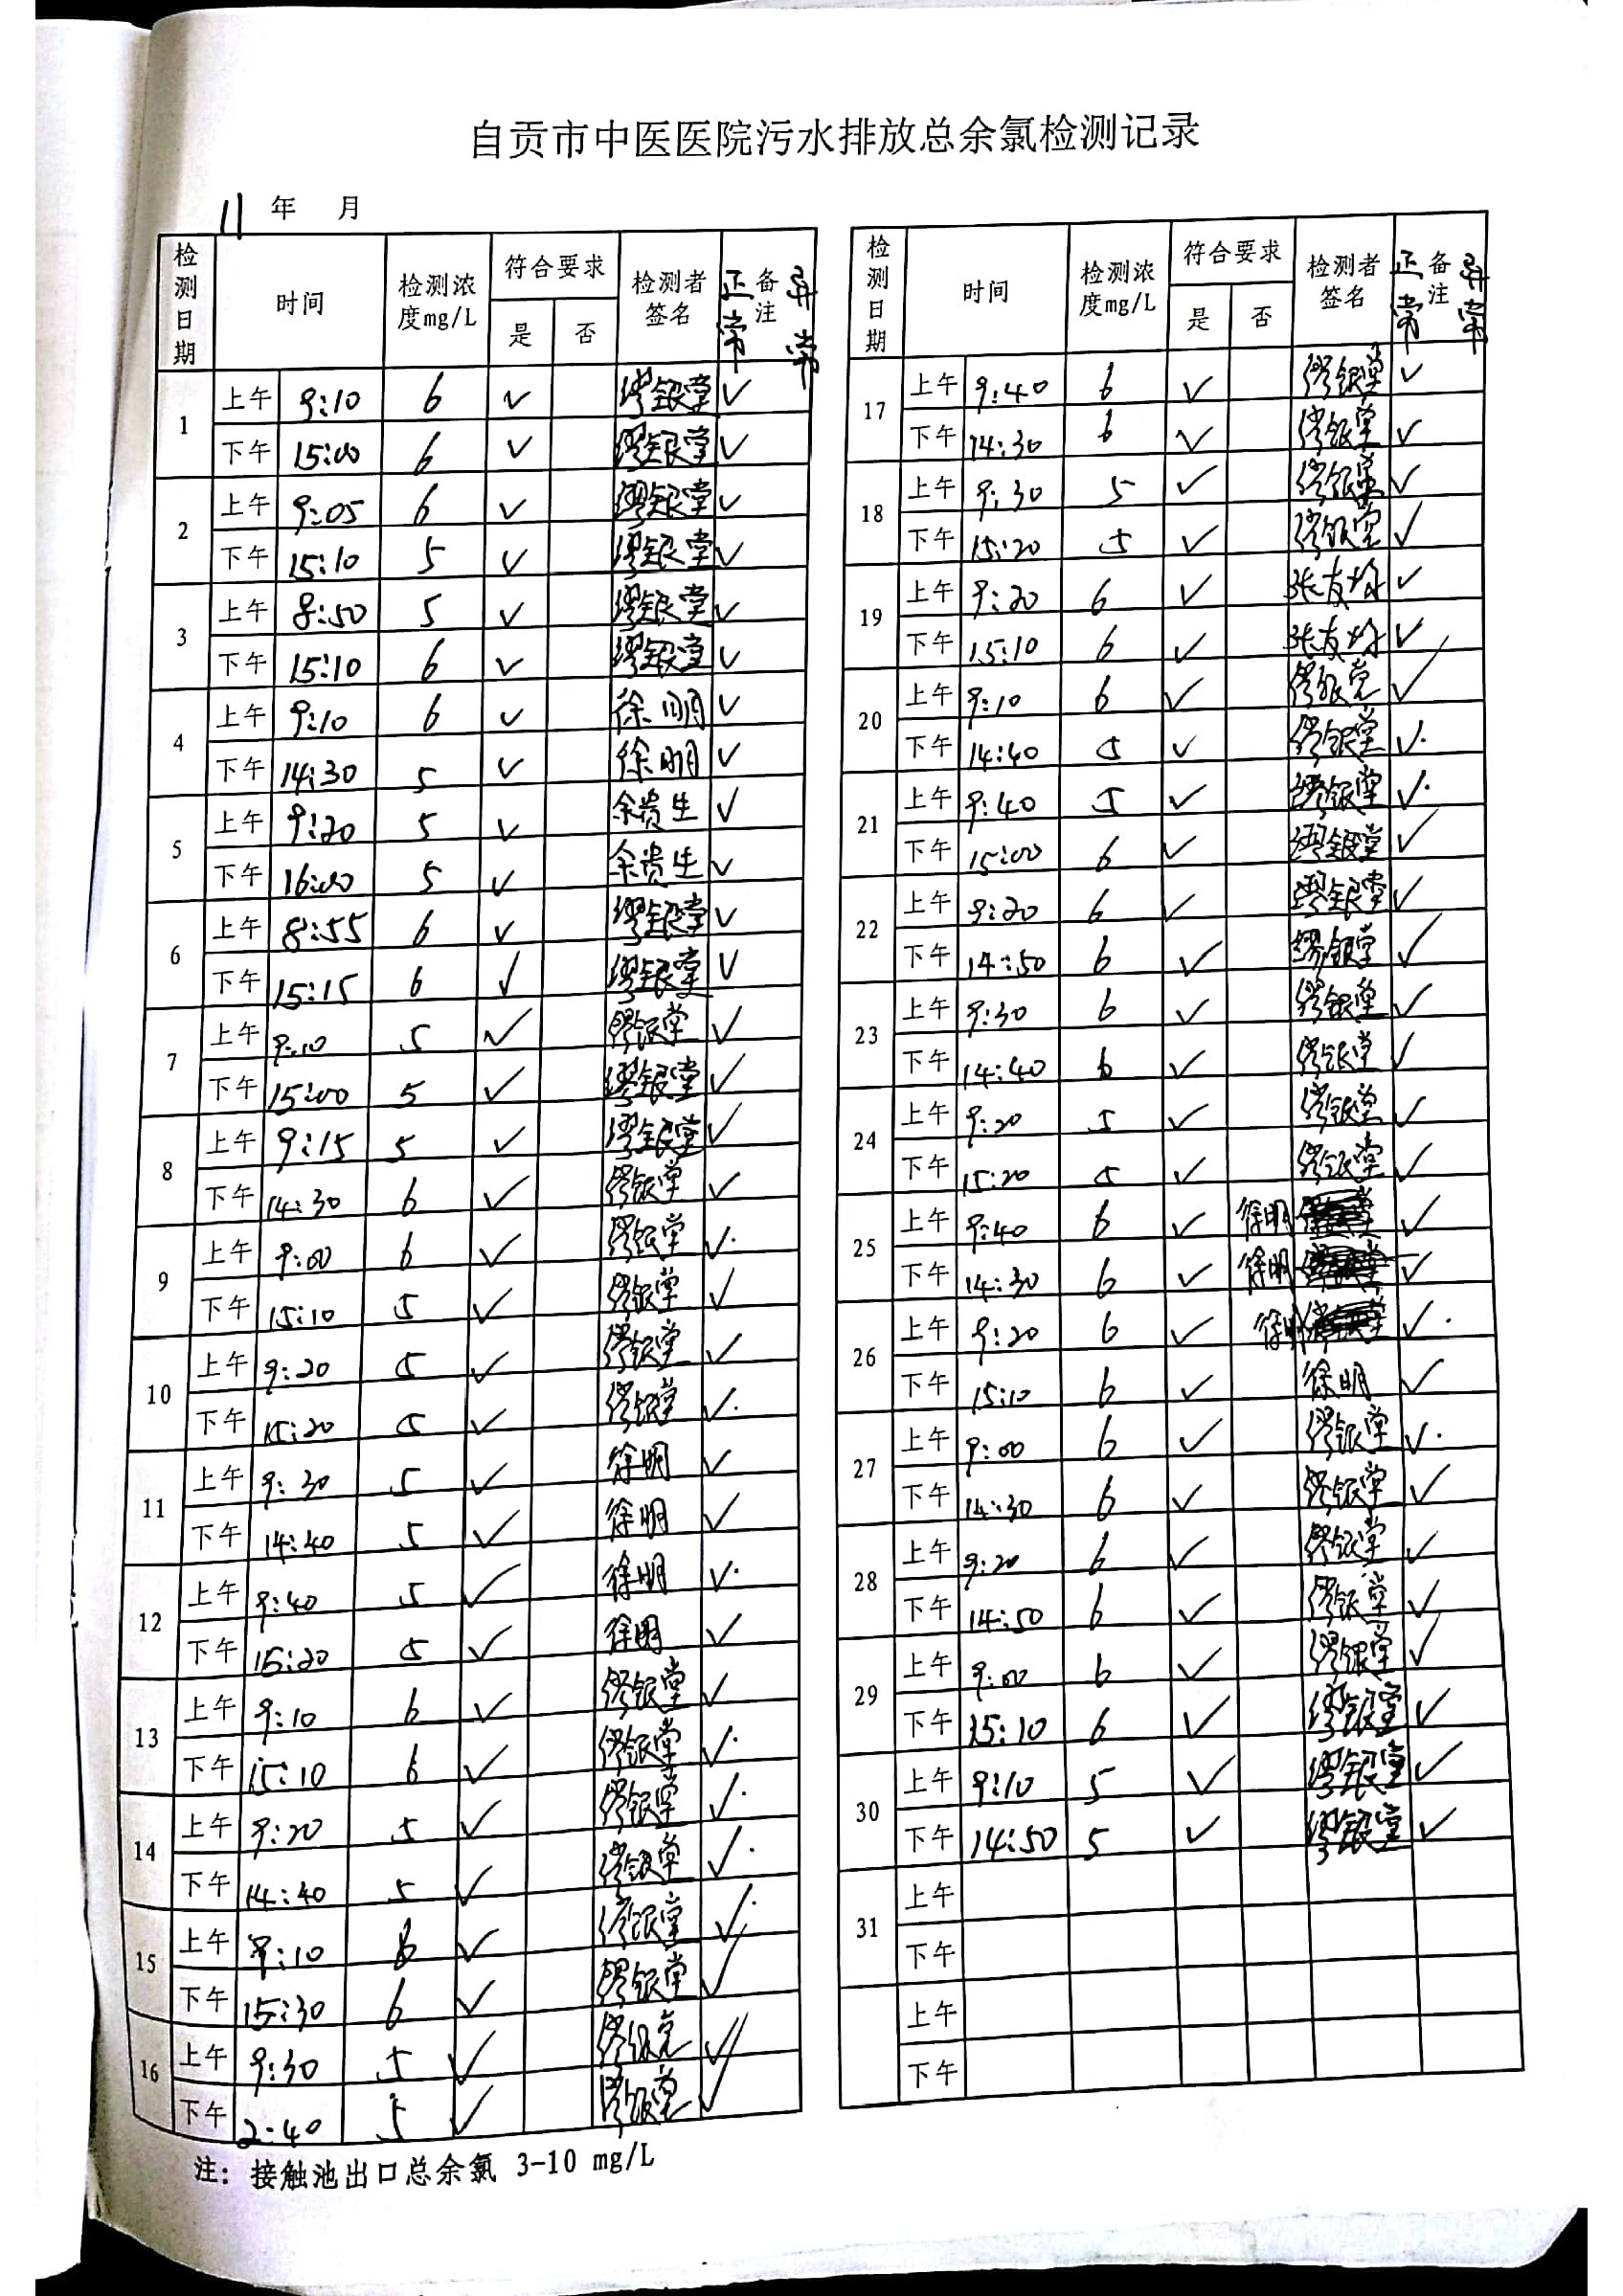 自贡市中医医院污水排放总余氯检测记录
11 年 月
检测日期 时间 检测浓度mg/L 符合要求 是 否 检测者签名 正常 备注 异常
1 上午 9:10 6 ✓ 缪银堂 ✓
下午 15:00 6 ✓ 缪银堂 ✓
2 上午 9:05 6 ✓ 缪银堂 ✓
下午 15:10 5 ✓ 缪银堂 ✓
3 上午 8:50 5 ✓ 缪银堂 ✓
下午 15:10 6 ✓ 缪银堂 ✓
4 上午 9:10 6 ✓ 徐明 ✓
下午 14:30 5 ✓ 徐明 ✓
5 上午 9:20 5 ✓ 余贵生 ✓
下午 16:00 5 ✓ 余贵生 ✓
6 上午 8:55 6 ✓ 缪银堂 ✓
下午 15:15 6 ✓ 缪银堂 ✓
7 上午 9:10 5 ✓ 缪银堂 ✓
下午 15:00 5 ✓ 缪银堂 ✓
8 上午 9:15 5 ✓ 缪银堂 ✓
下午 14:30 6 ✓ 缪银堂 ✓
9 上午 9:00 6 ✓ 缪银堂 ✓
下午 15:10 5 ✓ 缪银堂 ✓
10 上午 9:20 5 ✓ 缪银堂 ✓
下午 15:20 5 ✓ 缪银堂 ✓
11 上午 9:30 5 ✓ 徐明 ✓
下午 14:40 5 ✓ 徐明 ✓
12 上午 9:40 5 ✓ 徐明 ✓
下午 15:20 5 ✓ 徐明 ✓
13 上午 9:10 6 ✓ 缪银堂 ✓
下午 15:10 6 ✓ 缪银堂 ✓
14 上午 9:20 5 ✓ 缪银堂 ✓
下午 14:40 5 ✓ 缪银堂 ✓
15 上午 9:10 6 ✓ 缪银堂 ✓
下午 15:30 6 ✓ 缪银堂 ✓
16 上午 9:30 5 ✓ 缪银堂 ✓
下午 2:40 5 ✓ 缪银堂 ✓
注：接触池出口总余氯 3-10 mg/L
检测日期 时间 检测浓度mg/L 符合要求 是 否 检测者签名 正常 备注 异常
17 上午 9:40 6 ✓ 缪银堂 ✓
下午 14:30 6 ✓ 缪银堂 ✓
18 上午 9:30 5 ✓ 缪银堂 ✓
下午 15:20 5 ✓ 缪银堂 ✓
19 上午 9:20 6 ✓ 张友 ✓
下午 15:10 6 ✓ 张友 ✓
20 上午 9:10 6 ✓ 缪银堂 ✓
下午 14:40 5 ✓ 缪银堂 ✓
21 上午 9:40 5 ✓ 缪银堂 ✓
下午 15:00 6 ✓ 缪银堂 ✓
22 上午 9:20 6 ✓ 缪银堂 ✓
下午 14:50 6 ✓ 缪银堂 ✓
23 上午 9:30 6 ✓ 缪银堂 ✓
下午 14:40 6 ✓ 缪银堂 ✓
24 上午 9:20 5 ✓ 缪银堂 ✓
下午 15:20 5 ✓ 缪银堂 ✓
25 上午 9:40 6 ✓ 徐明 ✓
下午 14:30 6 ✓ 徐明 ✓
26 上午 9:20 6 ✓ 徐明 ✓
下午 15:10 6 ✓ 徐明 ✓
27 上午 9:00 6 ✓ 缪银堂 ✓
下午 14:30 6 ✓ 缪银堂 ✓
28 上午 9:20 6 ✓ 缪银堂 ✓
下午 14:50 6 ✓ 缪银堂 ✓
29 上午 9:00 6 ✓ 缪银堂 ✓
下午 15:10 6 ✓ 缪银堂 ✓
30 上午 9:10 5 ✓ 缪银堂 ✓
下午 14:50 5 ✓ 缪银堂 ✓
31 上午
下午
上午
下午